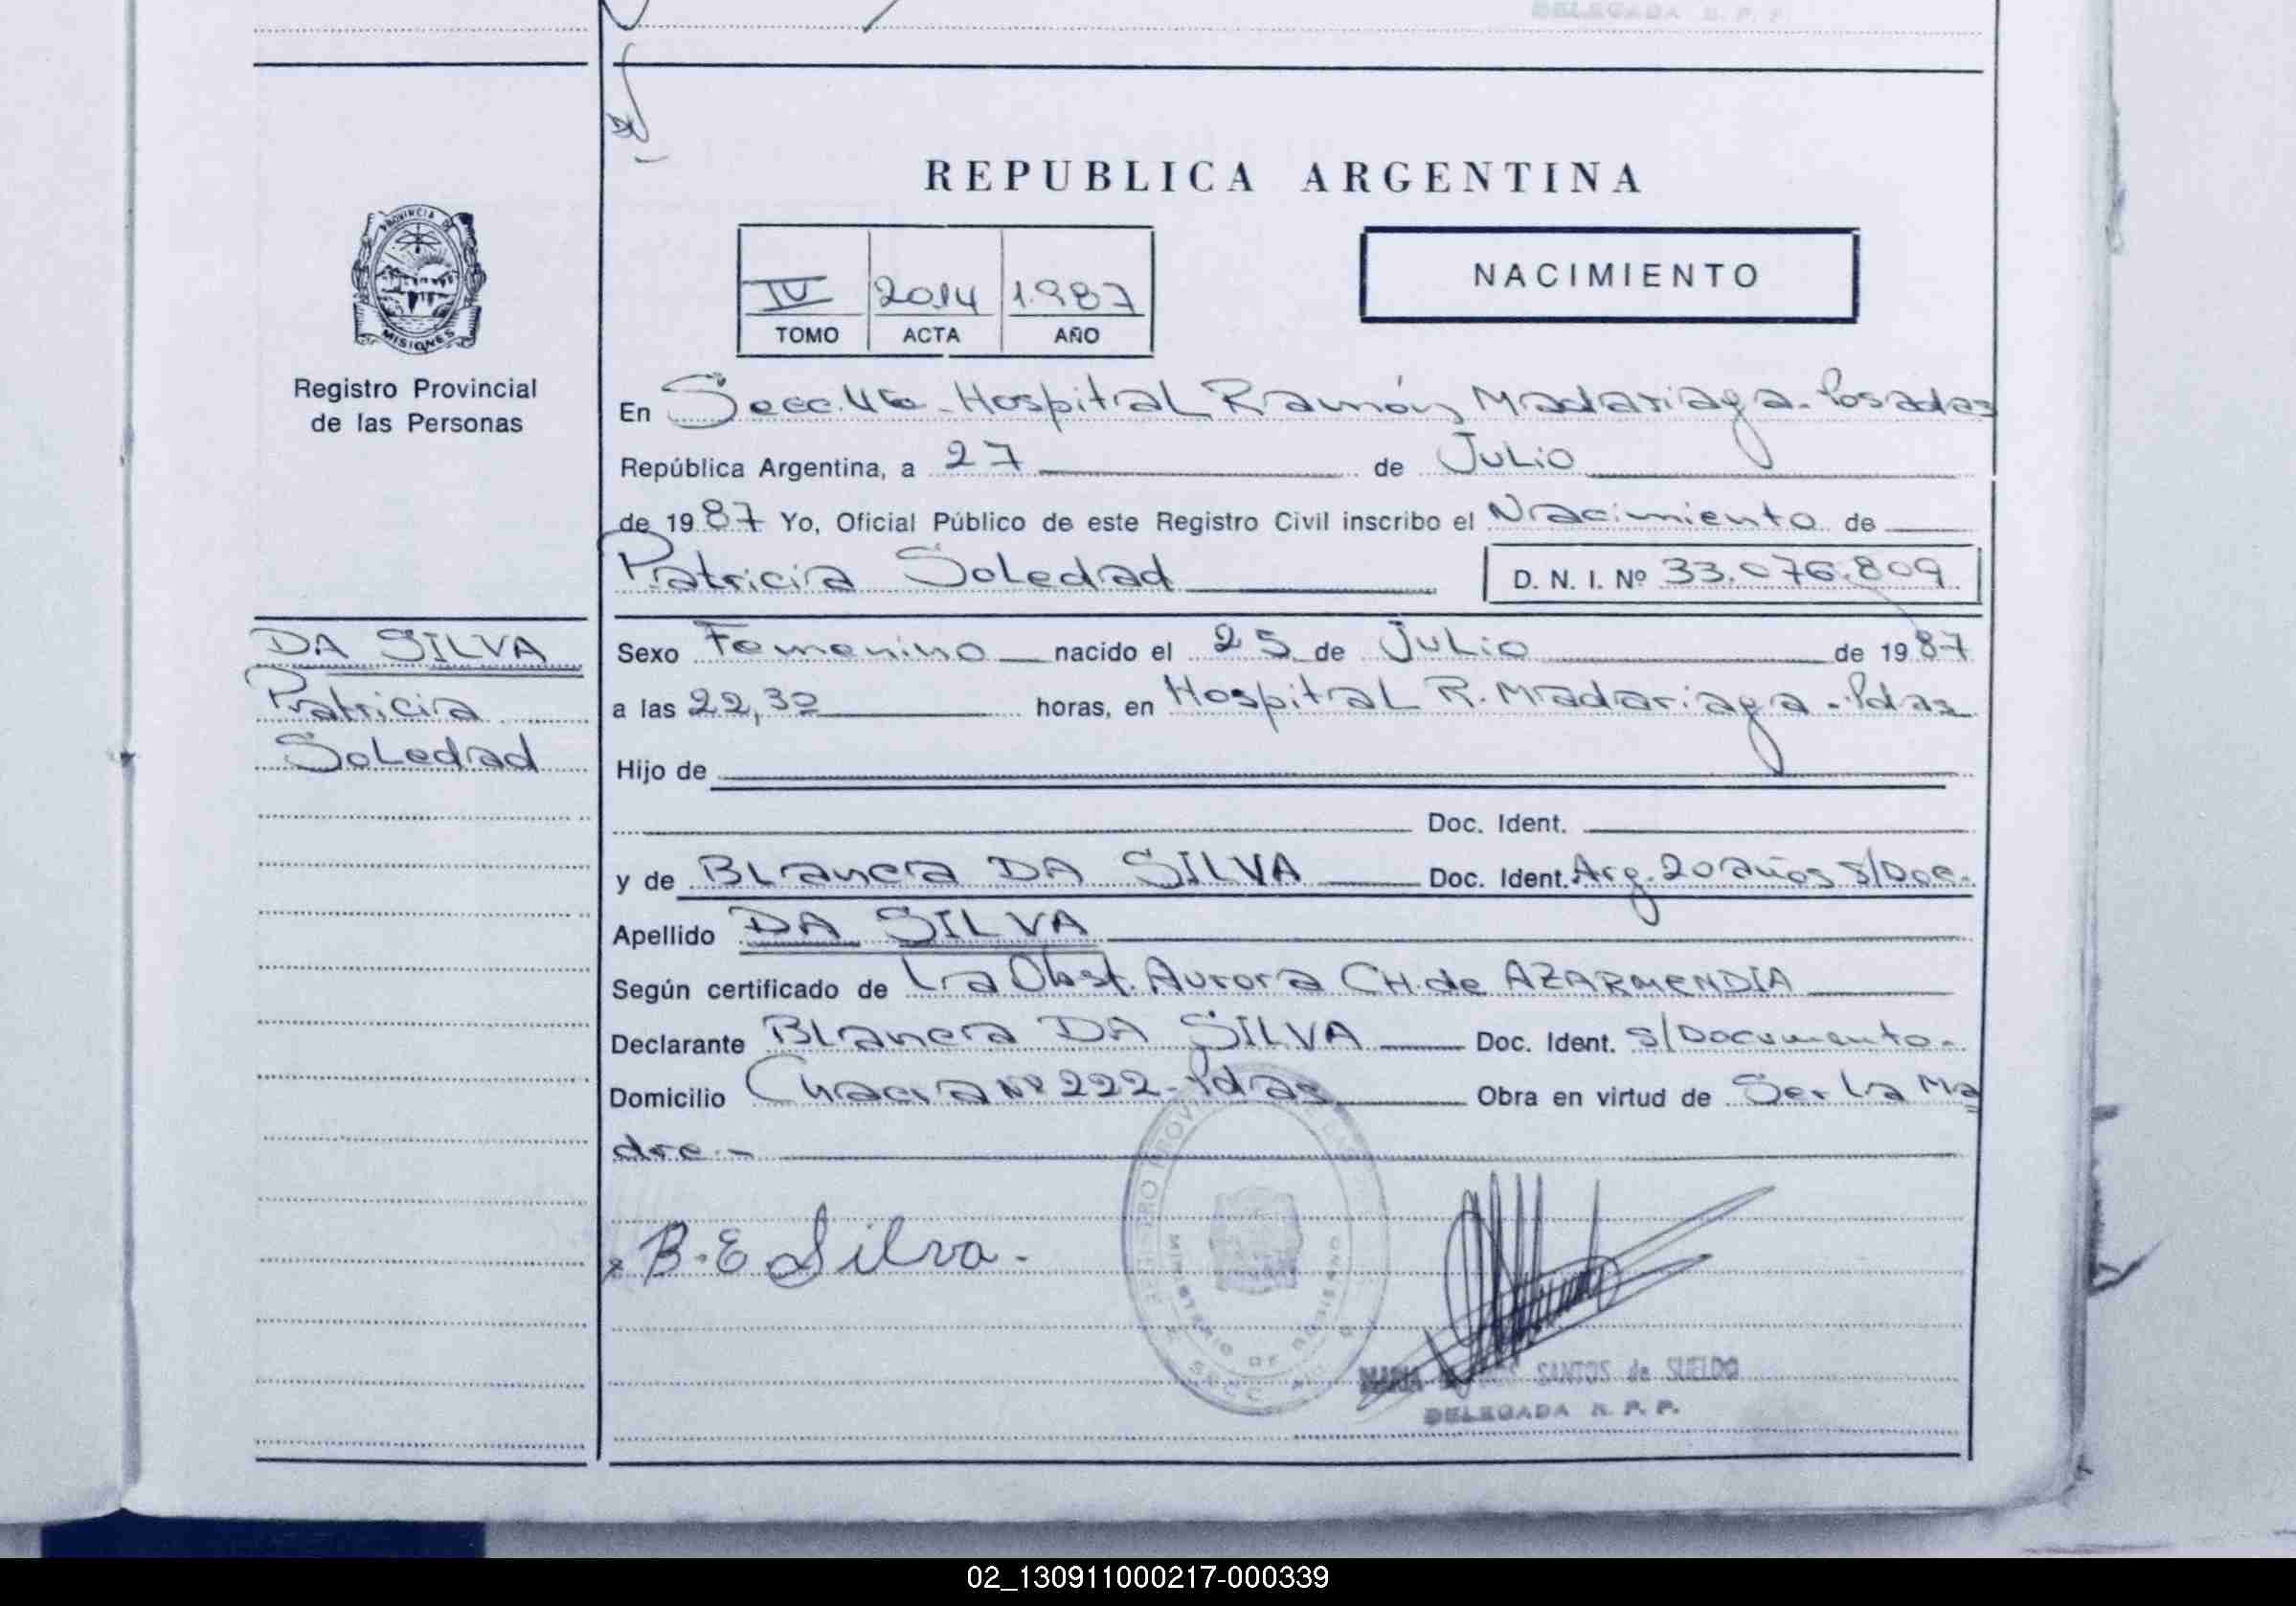 DELEGADA R. P. P.
REPUBLICA ARGENTINA
PROVINCIA DE
MISIONES
Registro Provincial
de las Personas
IV 2014 1.987
TOMO ACTA AÑO
NACIMIENTO
En Secc. 4ta - Hospital Ramón Madariaga - Posadas
República Argentina, a 27 de Julio
de 1987 Yo, Oficial Público de este Registro Civil inscribo el Nacimiento de
Patricia Soledad D. N. I. Nº 33.076.809
DA SILVA
Patricia
Soledad
Sexo Femenino nacido el 25 de Julio de 1987
a las 22,30 horas, en Hospital R. Madariaga - Pdas
Hijo de
Doc. Ident.
y de Blanca DA SILVA Doc. Ident. Arg. 20 años S/Doc.
Apellido DA SILVA
Según certificado de La Obst. Aurora CH. de AZARMENDIA
Declarante Blanca DA SILVA Doc. Ident. S/Documento.-
Domicilio Chacra Nº 222 - Pdas Obra en virtud de Ser La Ma
dre.-
B. E Silva.
MINISTERIO DE GOBIERNO
SANTOS de SUELDO
DELEGADA R. P. P.
02_130911000217-000339